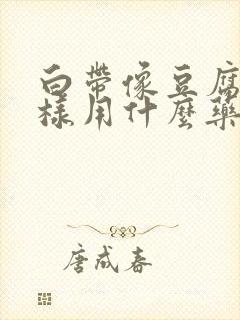 白帶像豆腐
樣用什麼藥
唐成春